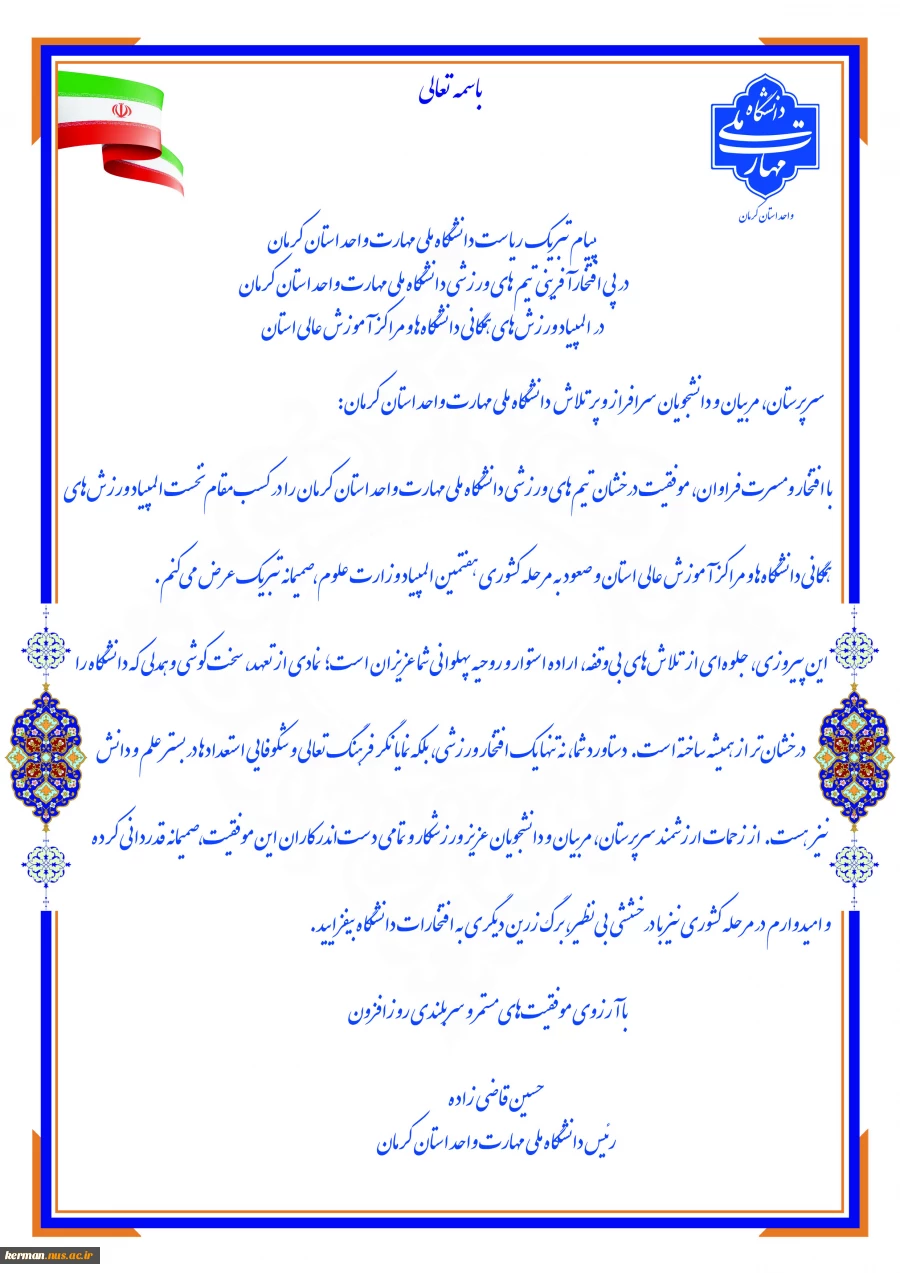 باسمه تعالی
دانشگاه
ملی
مهارت
واحد استان کرمان
پیام تبریک ریاست دانشگاه ملی مهارت واحد استان کرمان
در پی افتخارآفرینی تیم های ورزشی دانشگاه ملی مهارت واحد استان کرمان
در المپیاد ورزش های همگانی دانشگاه ها و مراکز آموزش عالی استان
سرپرستان، مربیان و دانشجویان سرافراز و پر تلاش دانشگاه ملی مهارت واحد استان کرمان:
با افتخار و مسرت فراوان، موفقیت درخشان تیم های ورزشی دانشگاه ملی مهارت واحد استان کرمان را در کسب مقام نخست المپیاد ورزش های
همگانی دانشگاه ها و مراکز آموزش عالی استان و صعود به مرحله کشوری هفتمین المپیاد وزارت علوم، صمیمانه تبریک عرض می کنم .
این پیروزی، جلوه ای از تلاش های بی وقفه، اراده استوار و روحیه پهلوانی شما عزیزان است؛ نمادی از تعهد، سخت کوشی و همدلی که دانشگاه را
درخشان تر از همیشه ساخته است. دستاورد شما، نه تنها یک افتخار ورزشی، بلکه نمایانگر فرهنگ تعالی و شکوفایی استعدادها در بستر علم و دانش
نیز هست. از زحمات ارزشمند سرپرستان، مربیان و دانشجویان عزیز ورزشکار و تمامی دست اندرکاران این موفقیت، صمیمانه قدردانی کرده
و امیدوارم در مرحله کشوری نیز با درخششی بی نظیر، برگ زرین دیگری به افتخارات دانشگاه بیفزایید.
با آرزوی موفقیت های مستمر و سربلندی روزافزون
حسین قاضی زاده
رئیس دانشگاه ملی مهارت واحد استان کرمان
kerman.nus.ac.ir